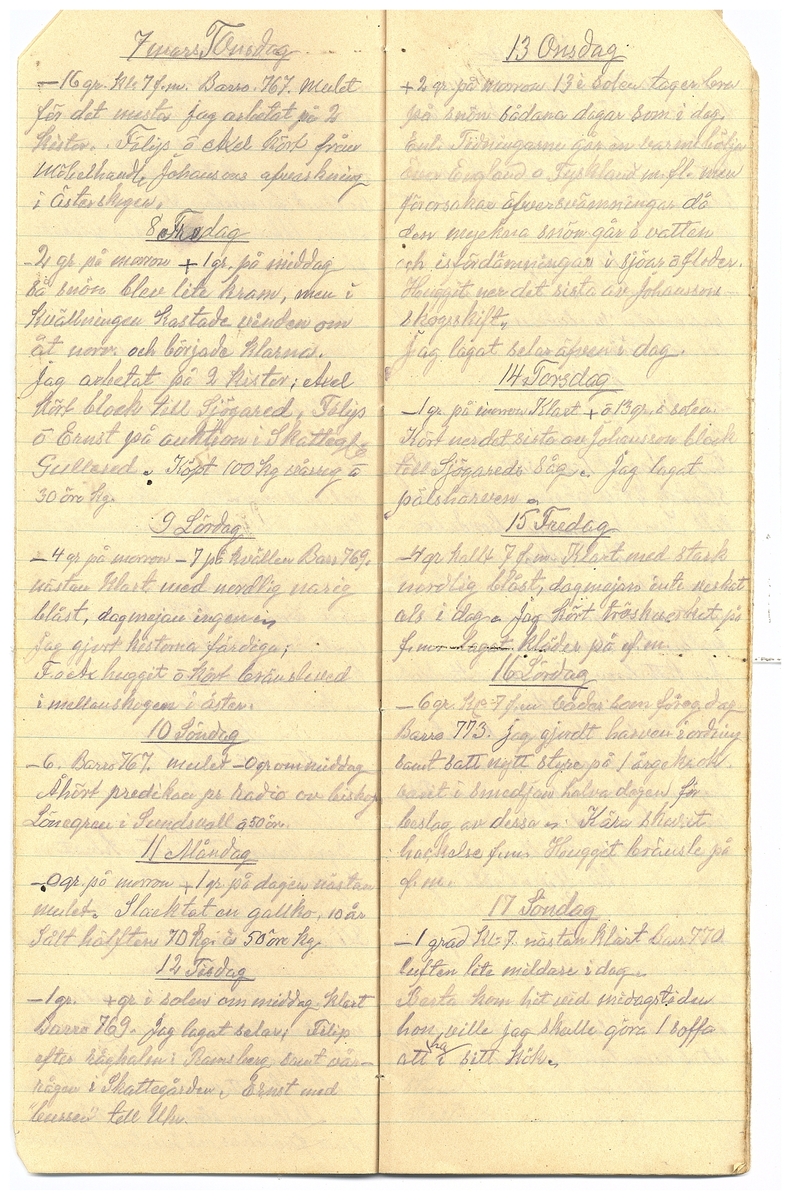 7 mars Torsdag
-16 gr. Kl: 7 f.m. Barro. 767. Mulet
för det mesta jag arbetat på 2
kistor. Filips o Axel kört från
Möbelhandl. Johansons avverkning
i Österskogen.
8 Fredag
-2 gr på morron +1 gr. på middag
så snön blev lite kram, men i
kvällningen kastade vinden om
åt norr och började klarna.
Jag arbetat på 2 kistor; Axel
kört block till Sjögared, Filips
o Ernst på auktion i Skatteg
Gullered. Köpt 100 kg vårråg à
30 öre kg.
9 Lördag
-4 gr på morron -7 på kvällen Barr 769.
nästan klart med nordlig
blåst, dagmejan ingen
Jag gjort kistorna färdiga;
F. o Ax huggit o kört bränsleved
i mellanskogen i öster.
10 Söndag
-6. Barro 767. mulet -0 gr om middag
Åhört predikan pr radio av biskop
Lönegren i Sundsvall 950
11 Måndag
-0 gr. på morron +1 gr på dagen nästan
mulet. Slacktat en gallko, 10 år
Sålt hälften 70 kg. à 50 öre kg.
12 Tisdag
-1 gr. + gr i solen om middag klart
Barro 769. Jag lagat selar; Filip
efter råghalm i Ramsberg samt vår-
rågen i Skattegården. Ernst med
"bussen" till Uhn.
13 Onsdag
+2 gr på morron 13 i solen tager bra
på snön sådana dagar som i dag.
Enl. Tidningarne går en varmebölja
över England o Tyskland m.fl. men
förorsakar äfversvämningar då
den myckna snön går i vatten
och isfördämningar i sjöar o floder.
Huggit ner det sista av Johansson
skogsskift.
Jag lagat selar äfven i dag.
14 Torsdag
-1 gr. på morron Klart + o 13 gr. i solen.
Kört ner det sista av Johansson block
till Sjögareds Såg. Jag lagat
pälsharven.
15 Fredag
-4 gr kallt 7 f.m. Klart med stark
nordlig blåst, dagmejan inte verkat
als i dag. Jag kört tröskverket på
f.m. lagat kläder på e.m.
16 Lördag
-6 gr. kl: 7 f.m. bådar som föreg. dag
Barro 773. jag gjordt harven i ordning
samt satt nytt styre på 1 årgekrok.
varit i smedjan halva dagen för
beslag av dessa. Kära skurit
hackelse f.m. Huggit bränsle på
e.m.
17 Söndag
-1 grad kl: 7. nästan klart Barr 770
luften lite mildare i dag.
Berta kom hit vid midagstiden
hon ville jag skulle göra 1 soffa
att ha i sitt kök.